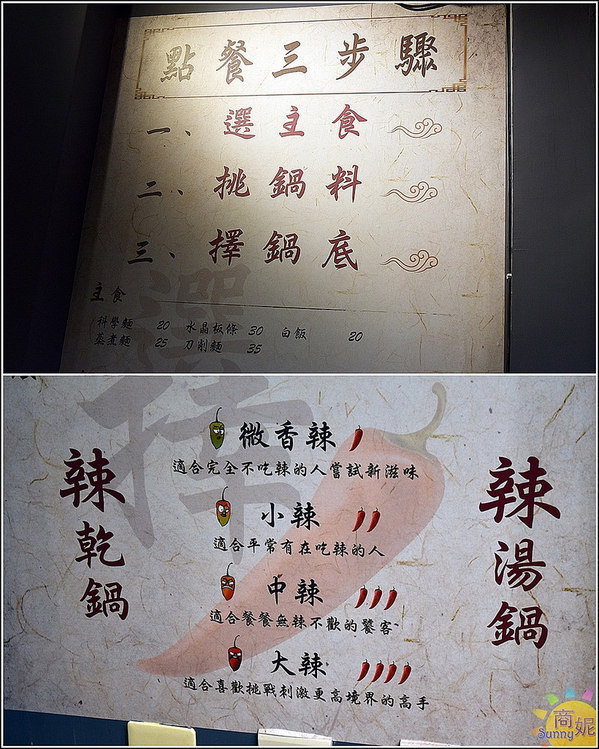 點餐三步驟
一、選主食
二、挑鍋料
三、擇鍋底
主食
科學麵 20 水晶板條 30 白飯 20
蒸煮麵 25 刀削麵 35
選擇
辣乾鍋
微香辣
適合完全不吃辣的人嘗試新滋味
小辣
適合平常有在吃辣的人
中辣
適合餐餐無辣不歡的饕客~
大辣
適合喜歡挑戰刺激更高境界的高手
辣湯鍋
商妮
Sunny